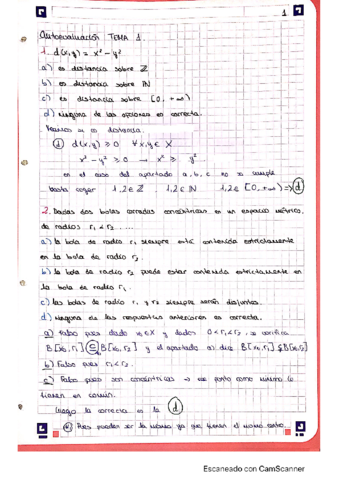 1
Autoevaluación TEMA 1.
1. d(x,y) = x² - y²
a) es distancia sobre ℤ
b) es distancia sobre ℕ
c) es distancia sobre [0, +∞)
d) Ninguna de las opciones es correcta.
Veamos si es distancia.
① d(x,y) ≥ 0 ∀x,y ∈ X
x² - y² ≥ 0 → x² ≥ y²
en el caso del apartado a, b, c no se cumple
basta coger 1,2 ∈ ℤ 1,2 ∈ ℕ 1,2 ∈ [0, +∞) => d
2. Dadas dos bolas cerradas concéntricas en un espacio métrico,
de radios r₁ < r₂ ....
a) la bola de radio r₁ siempre está contenida estrictamente
en la bola de radio r₂.
b) la bola de radio r₂ puede estar contenida estrictamente en
la bola de radio r₁.
c) las bolas de radio r₁ y r₂ siempre serán disjuntas.
d) Ninguna de las respuestas anteriores es correcta.
a) Falso pues dado x₀ ∈ X y dados 0 < r₁ < r₂, se verifica
B[x₀, r₁] ⊆ B[x₀, r₂] y el apartado a) dice B[x₀, r₁] ⊊ B[x₀, r₂]
b) Falso pues r₁ < r₂.
c) Falso pues son concéntricas → ese punto como mínimo lo
tienen en común.
Luego la correcta es la d
Pues pueden ser la misma ya que tienen el mismo centro.
Escaneado con CamScanner